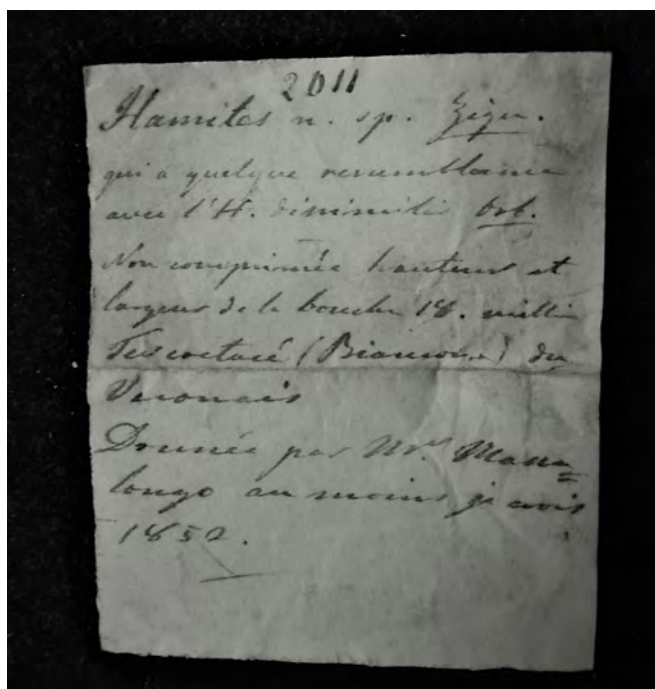 2011
Hamites n. sp. Zigu.
qui a quelque ressemblance
avec l'H. dissimilis Orb.
Non comprimée hauteur et
largeur de la bouche 18. millim
Ter. cretacé (Biancone) du
Veronais
Donnée par Mr. Massa=
longo au moins je crois
1852.